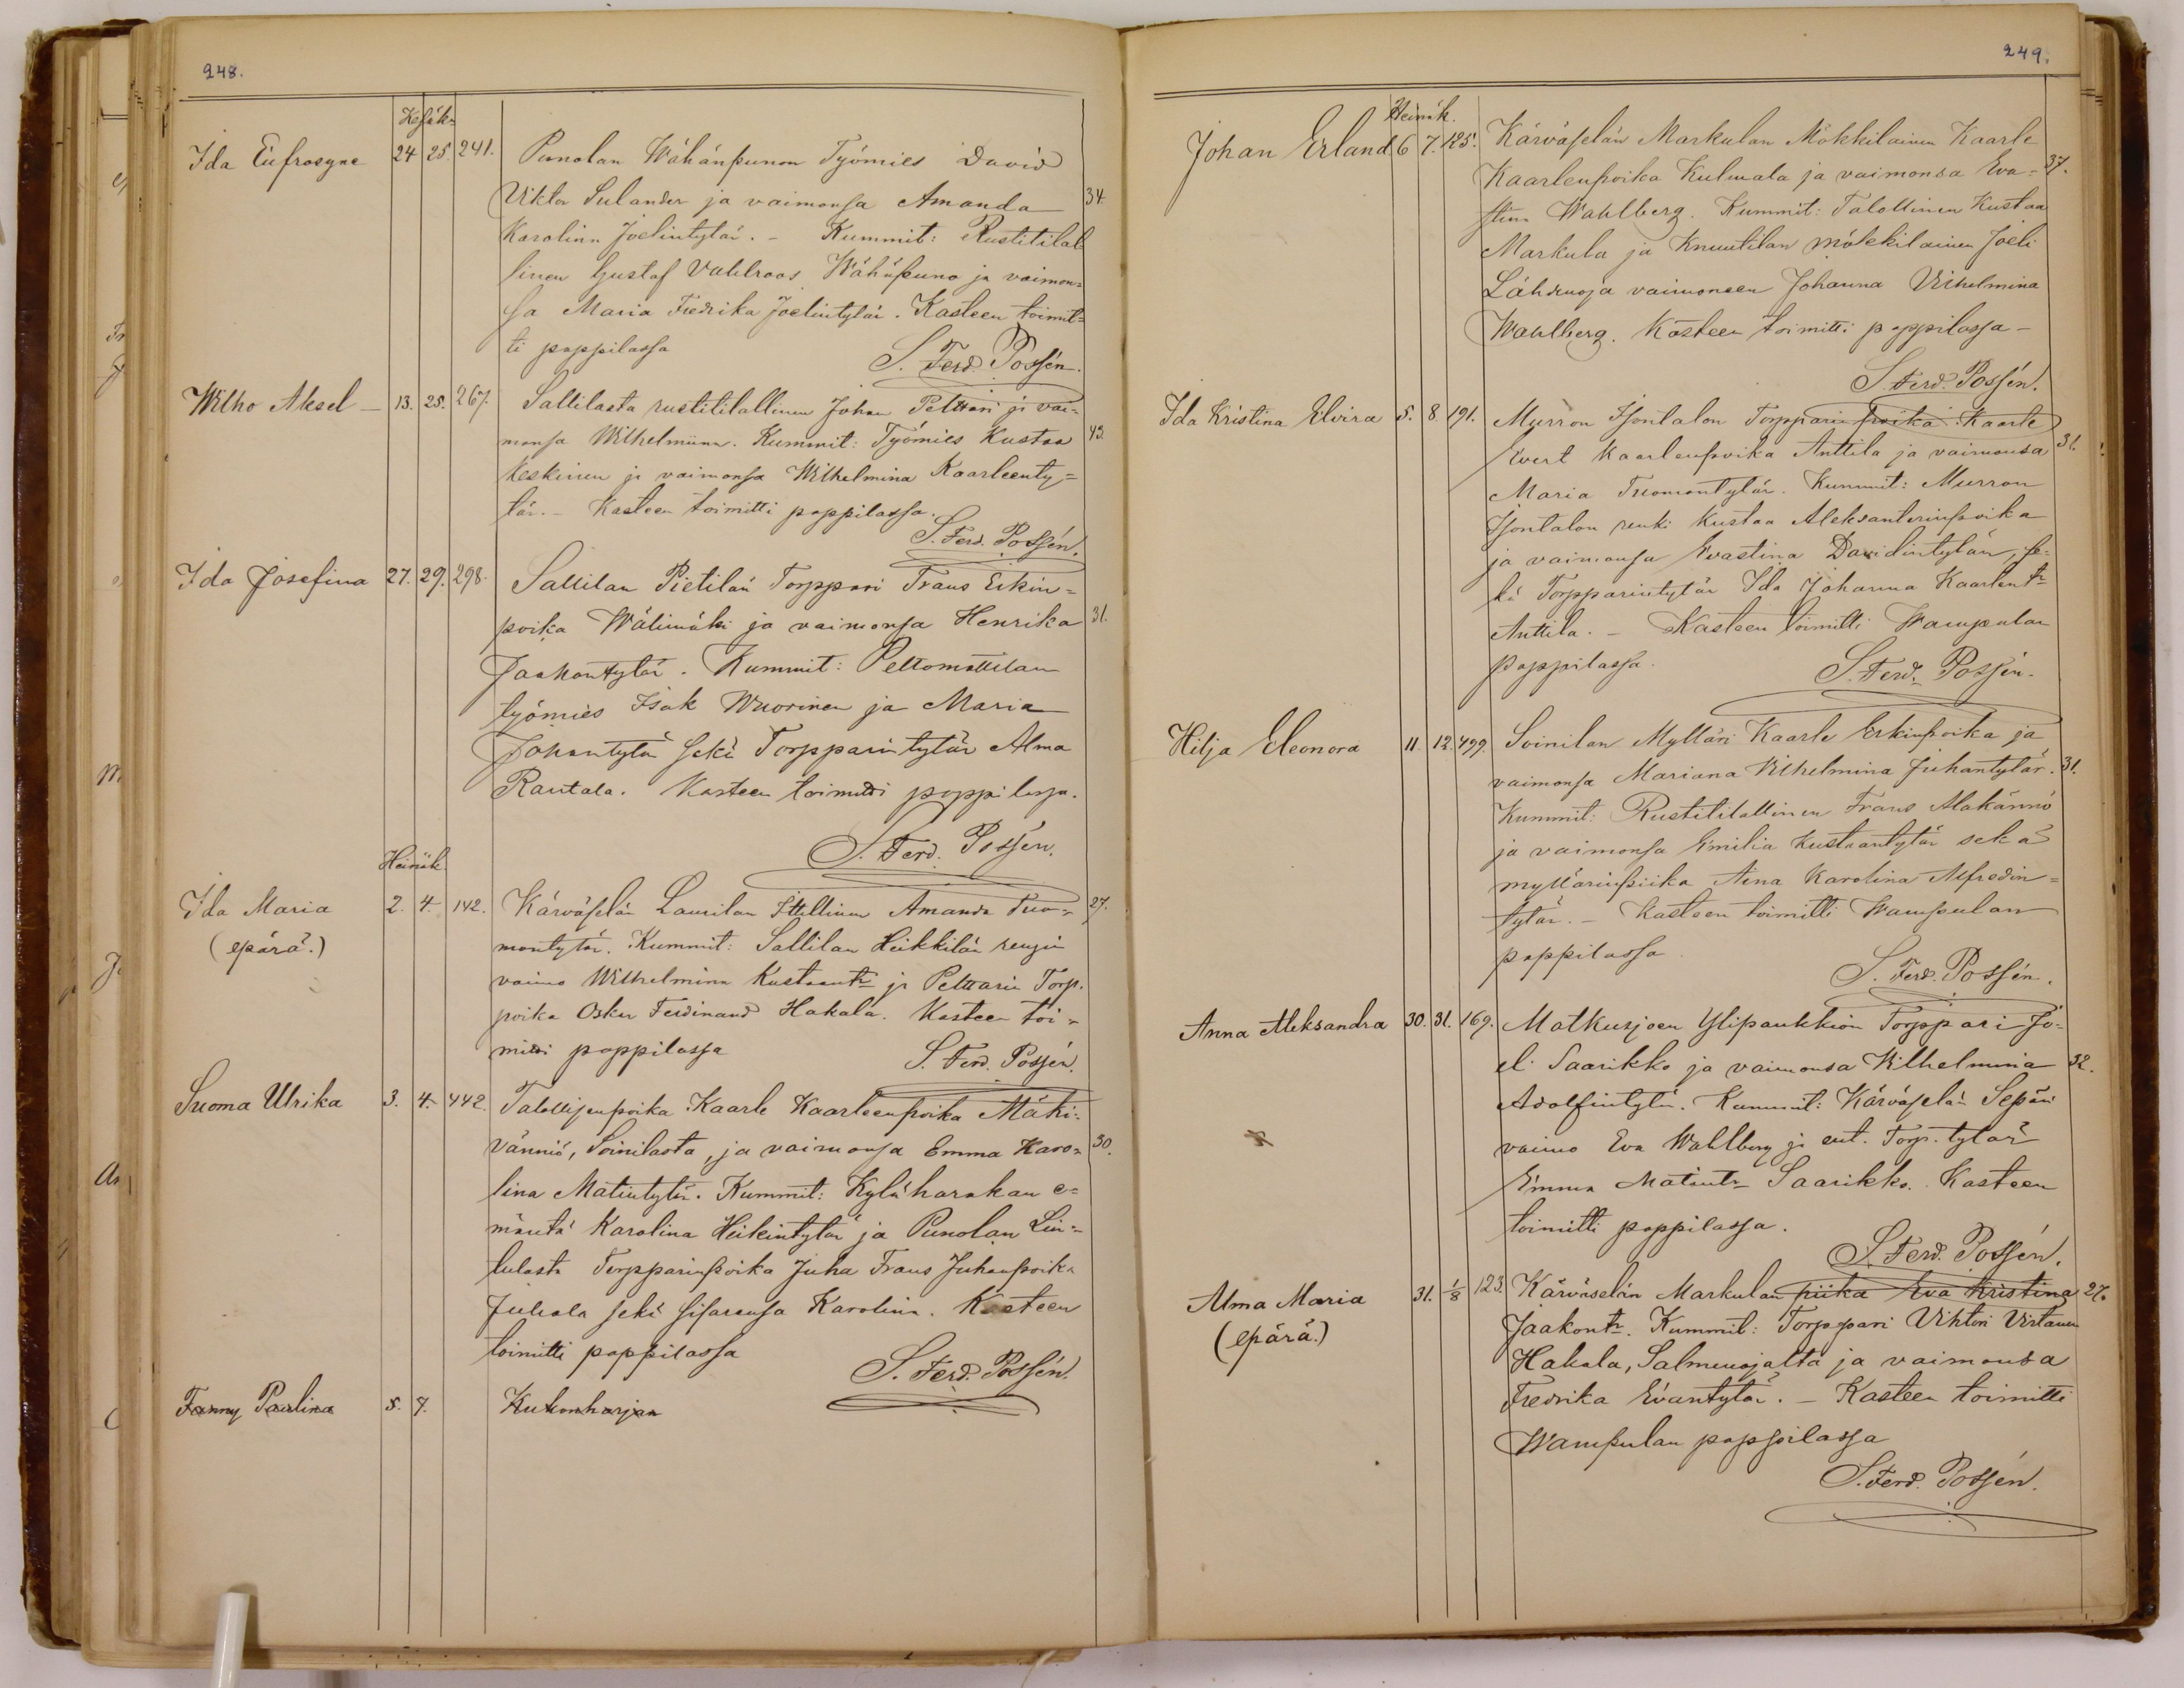 248.
Kesäk.
Ida Eufrosyne 24 25. 241. Punolan Wähänpunon Työmies David
Viktor Sulander ja vaimonsa Amanda 34.
Karolina Joelintytär. – Kummit: Rustitilal-
linen Gustaf Vahlroos Wähäpuno ja vaimon-
sa Maria Fredrika Joelintytär. Kasteen toimit-
ti pappilassa S. Ferd. Possén.
Wilho Aksel – 13. 25. 267. Sallilasta rustitilallinen Johan Pelttari ja vai-
monsa Wilhelmiina. Kummit: Työmies Kustaa 43.
Keskinen ja vaimonsa Wilhelmina Kaarleenty-
tär. – Kasteen toimitti pappilassa.
S. Ferd. Possén.
Ida Josefina 27. 29. 298. Sallilan Pietilän Torppari Frans Erkin-
poika Wälimäki ja vaimonsa Henrika 31.
Jaakontytär. Kummit: Peltomattilan
työmies Isak Wuorinen ja Maria
Johantytär sekä Torpparintytär Alma
Rantala. Kasteen toimitti pappilassa.
S. Ferd. Possén.
Heinäk.
Ida Maria 2. 4. 142. Kärväselän Laurilan Itsellinen Amanda Tuo- 27.
(epärä.) montytär. Kummit: Sallilan Heikkilän rengin
vaimo Wilhelmina Kustaantr ja Pelttarin Torp.
poika Oskar Ferdinand Hakala. Kasteen toi-
mitti pappilassa S. Ferd. Possén.
Suoma Ulrika 3. 4. 442. Talollisenpoika Kaarle Kaarleenpoika Mäki-
vänniö, Soinilasta, ja vaimonsa Emma Karo- 30.
lina Matintytär. Kummit: Kyläharakan e-
mäntä Karolina Heikintytär ja Punolan
lulasta Torpparinpoika Juha Frans Juhanpoika
Juhala sekä sisarensa Karolina. Kasteen
toimitti pappilassa S. Ferd. Possén.
Fanny Paulina 5. 7. Kukonharjan
249.
Heinäk.
Johan Erland 6 7. 125. Kärväselän Markulan Mökkiläinen Kaarle
Kaarlenpoika Kulmala ja vaimonsa Eva- 37.
stina Wahlberg. Kummit: Talollinen Kustaa
Markula ja Knuutilan mökkiläinen Joeli
Lähdeoja vaimoneen Johanna Vilhelmina
Wahlberg. Kasteen toimitti pappilassa –
S. Ferd. Possén.
Ida Kristina Elvira 5. 8 191. Murron Isontalon Torpparin poika Kaarle
Evert Kaarlenpoika Anttila ja vaimonsa 31.
Maria Tuomontytär. Kummit: Murron
Isontalon renki Kustaa Aleksanterinpoika
ja vaimonsa Evastina Davidintytär, se-
kä Torpparintytär Ida Johanna Kaarlentr
Anttila. – Kasteen toimitti Wampulan
pappilassa. S. Ferd. Possén.
Hilja Eleonora 11. 12. 499. Soinilan Mylläri Kaarle Erkinpoika ja
vaimonsa Mariana Vilhelmina Juhantytär. 31.
Kummit: Rustitilallinen Frans Alakännö
ja vaimonsa Emilia Kustaantytär sekä
myllärinpiika Aina Karolina Alfredin-
tytär. – Kasteen toimitti Wampulan
pappilassa S. Ferd. Possén.
Anna Aleksandra 30. 31. 169. Matkusjoen Ylipaukkion Torppari Jo-
el Saarikko ja vaimonsa Vilhelmina 32.
Adolfintytär. Kummit: Kärväselän Sepän
vaimo Eva Wahlberg ja ent. Torp. tytär
Emma Matintr Saarikko. Kasteen
toimitti pappilassa.
S. Ferd. Possén.
Alma Maria 31. 1/8 123. Kärväselän Markulan piika Eva Kristina 27.
(epärä.) Jaakontr. Kummit: Torppari Vihtori Virtanen
Hakala, Salmenojalta ja vaimonsa
Fredrika Evantytär. – Kasteen toimitti
Wampulan pappilassa
S. Ferd. Possén.